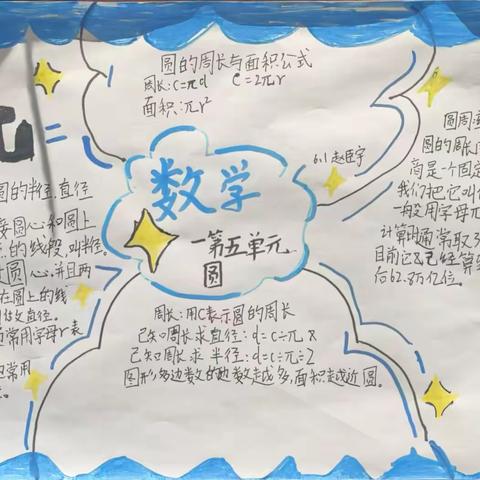 圆的周长与面积公式
周长:C=πd C=2πr
面积:πr²
π=
6.1 赵臣宇
数学
一第五单元
圆
圆的半径.直径
接圆心和圆上
的线段,叫半径。
圆心,并且两
在圆上的线
叫做直径。
常用字母r表
常用
圆周
圆的周长
商是一个固定
我们把它叫
一般用字母
计算时通常取3
目前它已经算
后62.8万亿位。
周长:用C表示圆的周长
已知周长求直径:d=C÷π
已知周长求半径:d=C÷π÷2
图形,多边数的边数越多,面积越近圆。